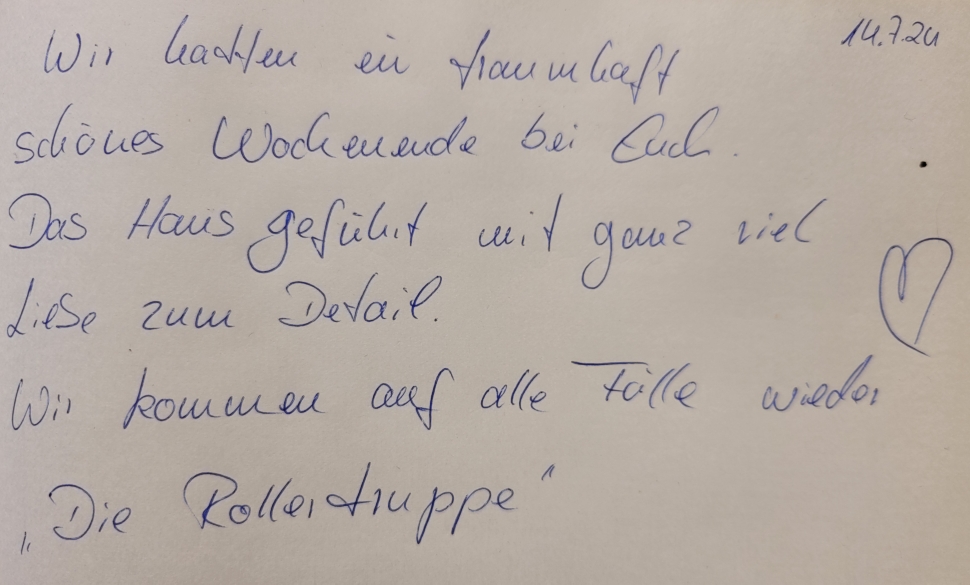 14.7.24
Wir hatten ein traumhaft
schönes Wochenende bei Euch.
Das Haus geführt mit ganz viel
Liebe zum Detail.
Wir kommen auf alle Fälle wieder
„Die Rollertruppe“